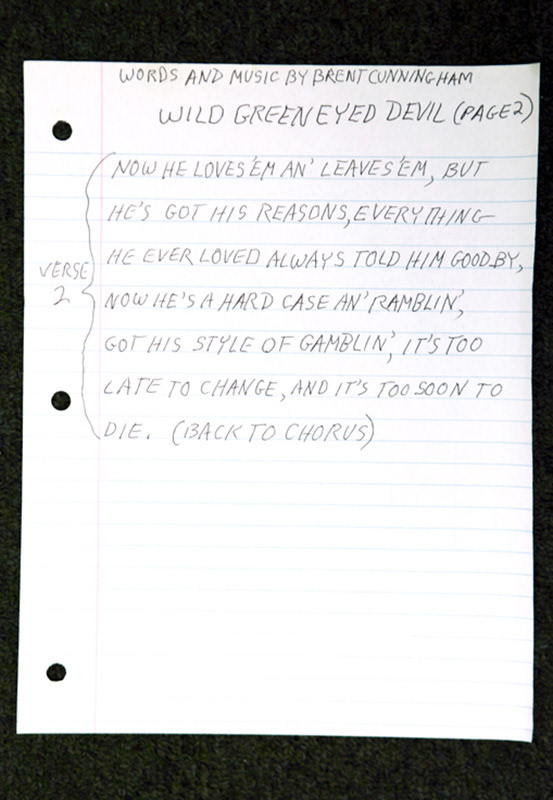 WORDS AND MUSIC BY BRENT CUNNINGHAM
WILD GREEN EYED DEVIL (PAGE 2)
NOW HE LOVES 'EM AN' LEAVES 'EM, BUT
HE'S GOT HIS REASONS, EVERYTHING
HE EVER LOVED ALWAYS TOLD HIM GOODBY,
VERSE 2
NOW HE'S A HARD CASE AN' RAMBLIN',
GOT HIS STYLE OF GAMBLIN', IT'S TOO
LATE TO CHANGE, AND IT'S TOO SOON TO
DIE. (BACK TO CHORUS)